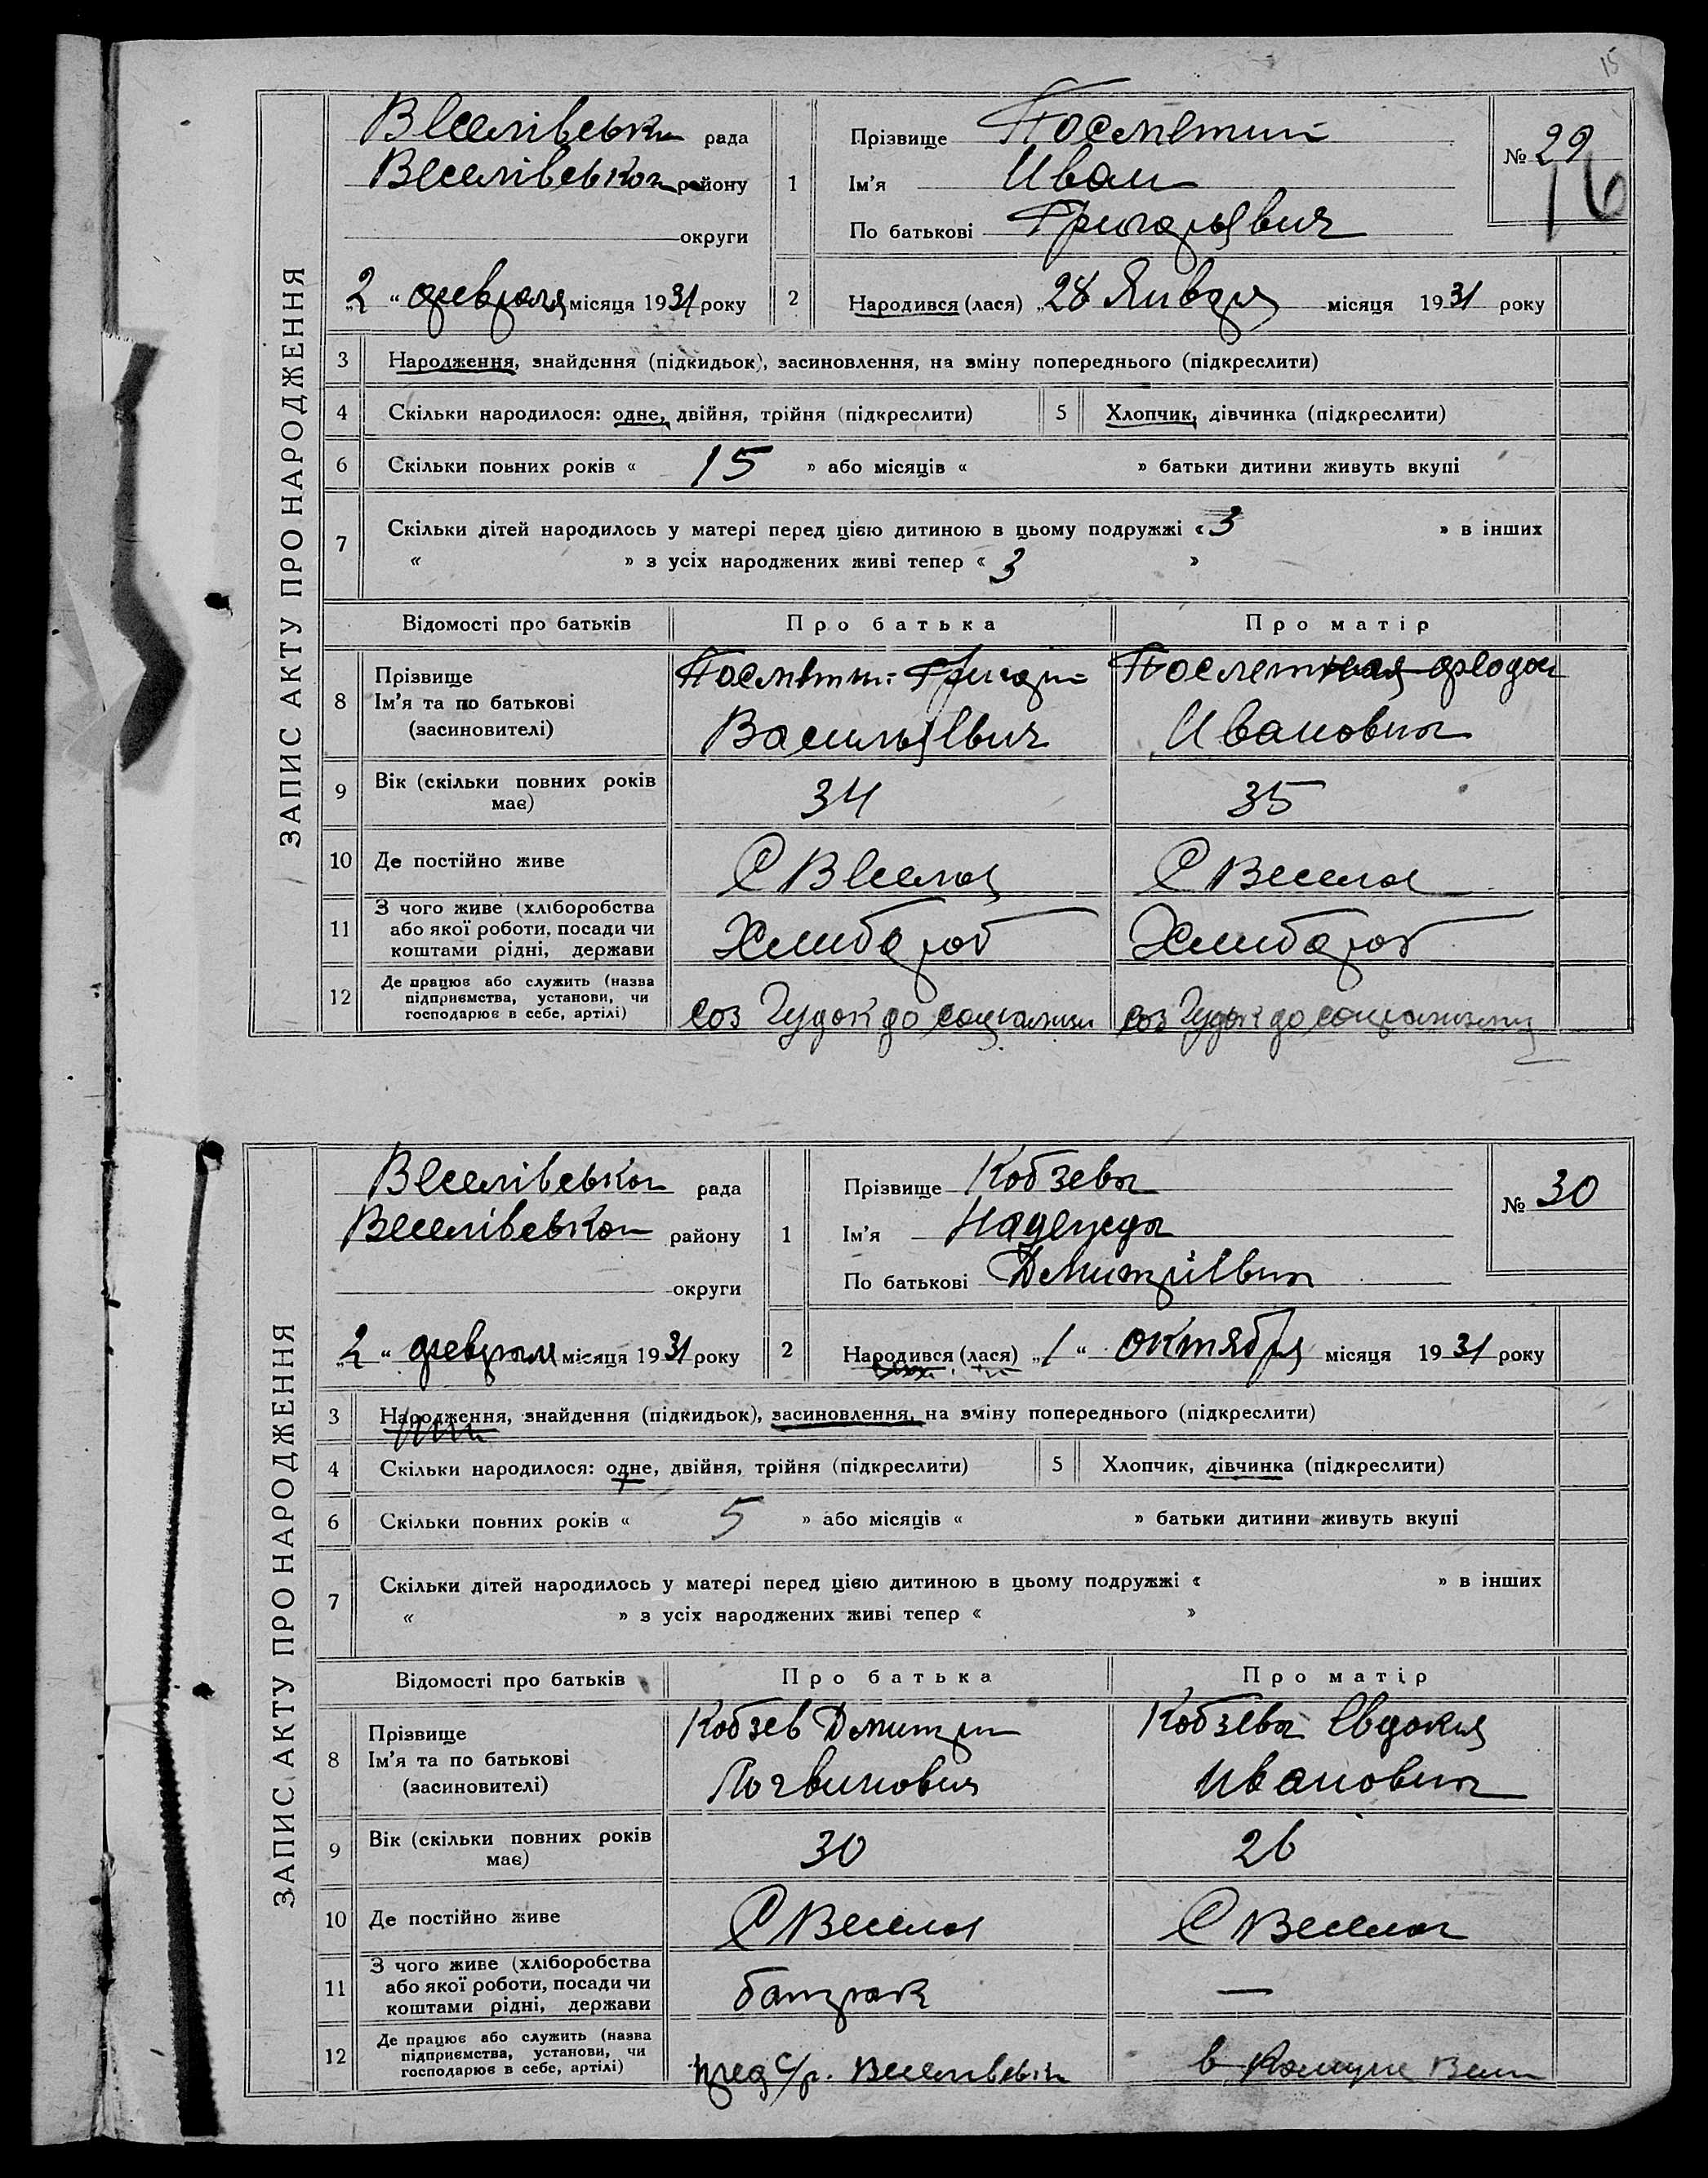 15
ЗАПИС АКТУ ПРО НАРОДЖЕННЯ
Веселівська рада
Веселівськог району
округи
„2 “ февраля місяця 1931 року
1
Прізвище Посметний
Ім'я Иван
По батькові Григорьевич
№ 29
16
2
Народився (лася) „28 Января місяця 1931 року
3 Народження, знайдення (підкидьок), засиновлення, на зміну попереднього (підкреслити)
4 Скільки народилося: одне, двійня, трійня (підкреслити) 5 Хлопчик, дівчинка (підкреслити)
6 Скільки повних років « 15 » або місяців « » батьки дитини живуть вкупі
7 Скільки дітей народилось у матері перед цією дитиною в цьому подружжі « 3 » в інших
« » з усіх народжених живі тепер « 3 »
Відомості про батьків Про батька Про матір
8 Прізвище
Ім'я та по батькові
(засиновителі)
Посметний Григорий
Васильевич
Посметная Феодос
Ивановна
9 Вік (скільки повних років
має)
34 35
10 Де постійно живе С Веселое С Веселое
11 З чого живе (хліборобства
або якої роботи, посади чи
коштами рідні, держави
Хлибороб Хлибороб
12 Де працює або служить (назва
підприємства, установи, чи
господарює в себе, артілі)
Соз Гудок до социализм Соз Гудок до социализму
ЗАПИС АКТУ ПРО НАРОДЖЕННЯ
Веселівськог рада
Веселівськог району
округи
„2 “ февраля місяця 1931 року
1
Прізвище Кобзева
Ім'я Надежда
По батькові Дмитріевна
№ 30
2
Народився (лася) „1“ октября місяця 1931 року
3 Народження, знайдення (підкидьок), засиновлення, на зміну попереднього (підкреслити)
4 Скільки народилося: одне, двійня, трійня (підкреслити) 5 Хлопчик, дівчинка (підкреслити)
6 Скільки повних років « 5 » або місяців « » батьки дитини живуть вкупі
7 Скільки дітей народилось у матері перед цією дитиною в цьому подружжі « » в інших
« » з усіх народжених живі тепер « »
Відомості про батьків Про батька Про матір
8 Прізвище
Ім'я та по батькові
(засиновителі)
Кобзев Дмитри
Логвинович
Кобзева Евдокия
Ивановна
9 Вік (скільки повних років
має)
30 26
10 Де постійно живе С Веселое С Веселое
11 З чого живе (хліборобства
або якої роботи, посади чи
коштами рідні, держави
батрак —
12 Де працює або служить (назва
підприємства, установи, чи
господарює в себе, артілі)
пред с/р. Веселівськ в Комуне